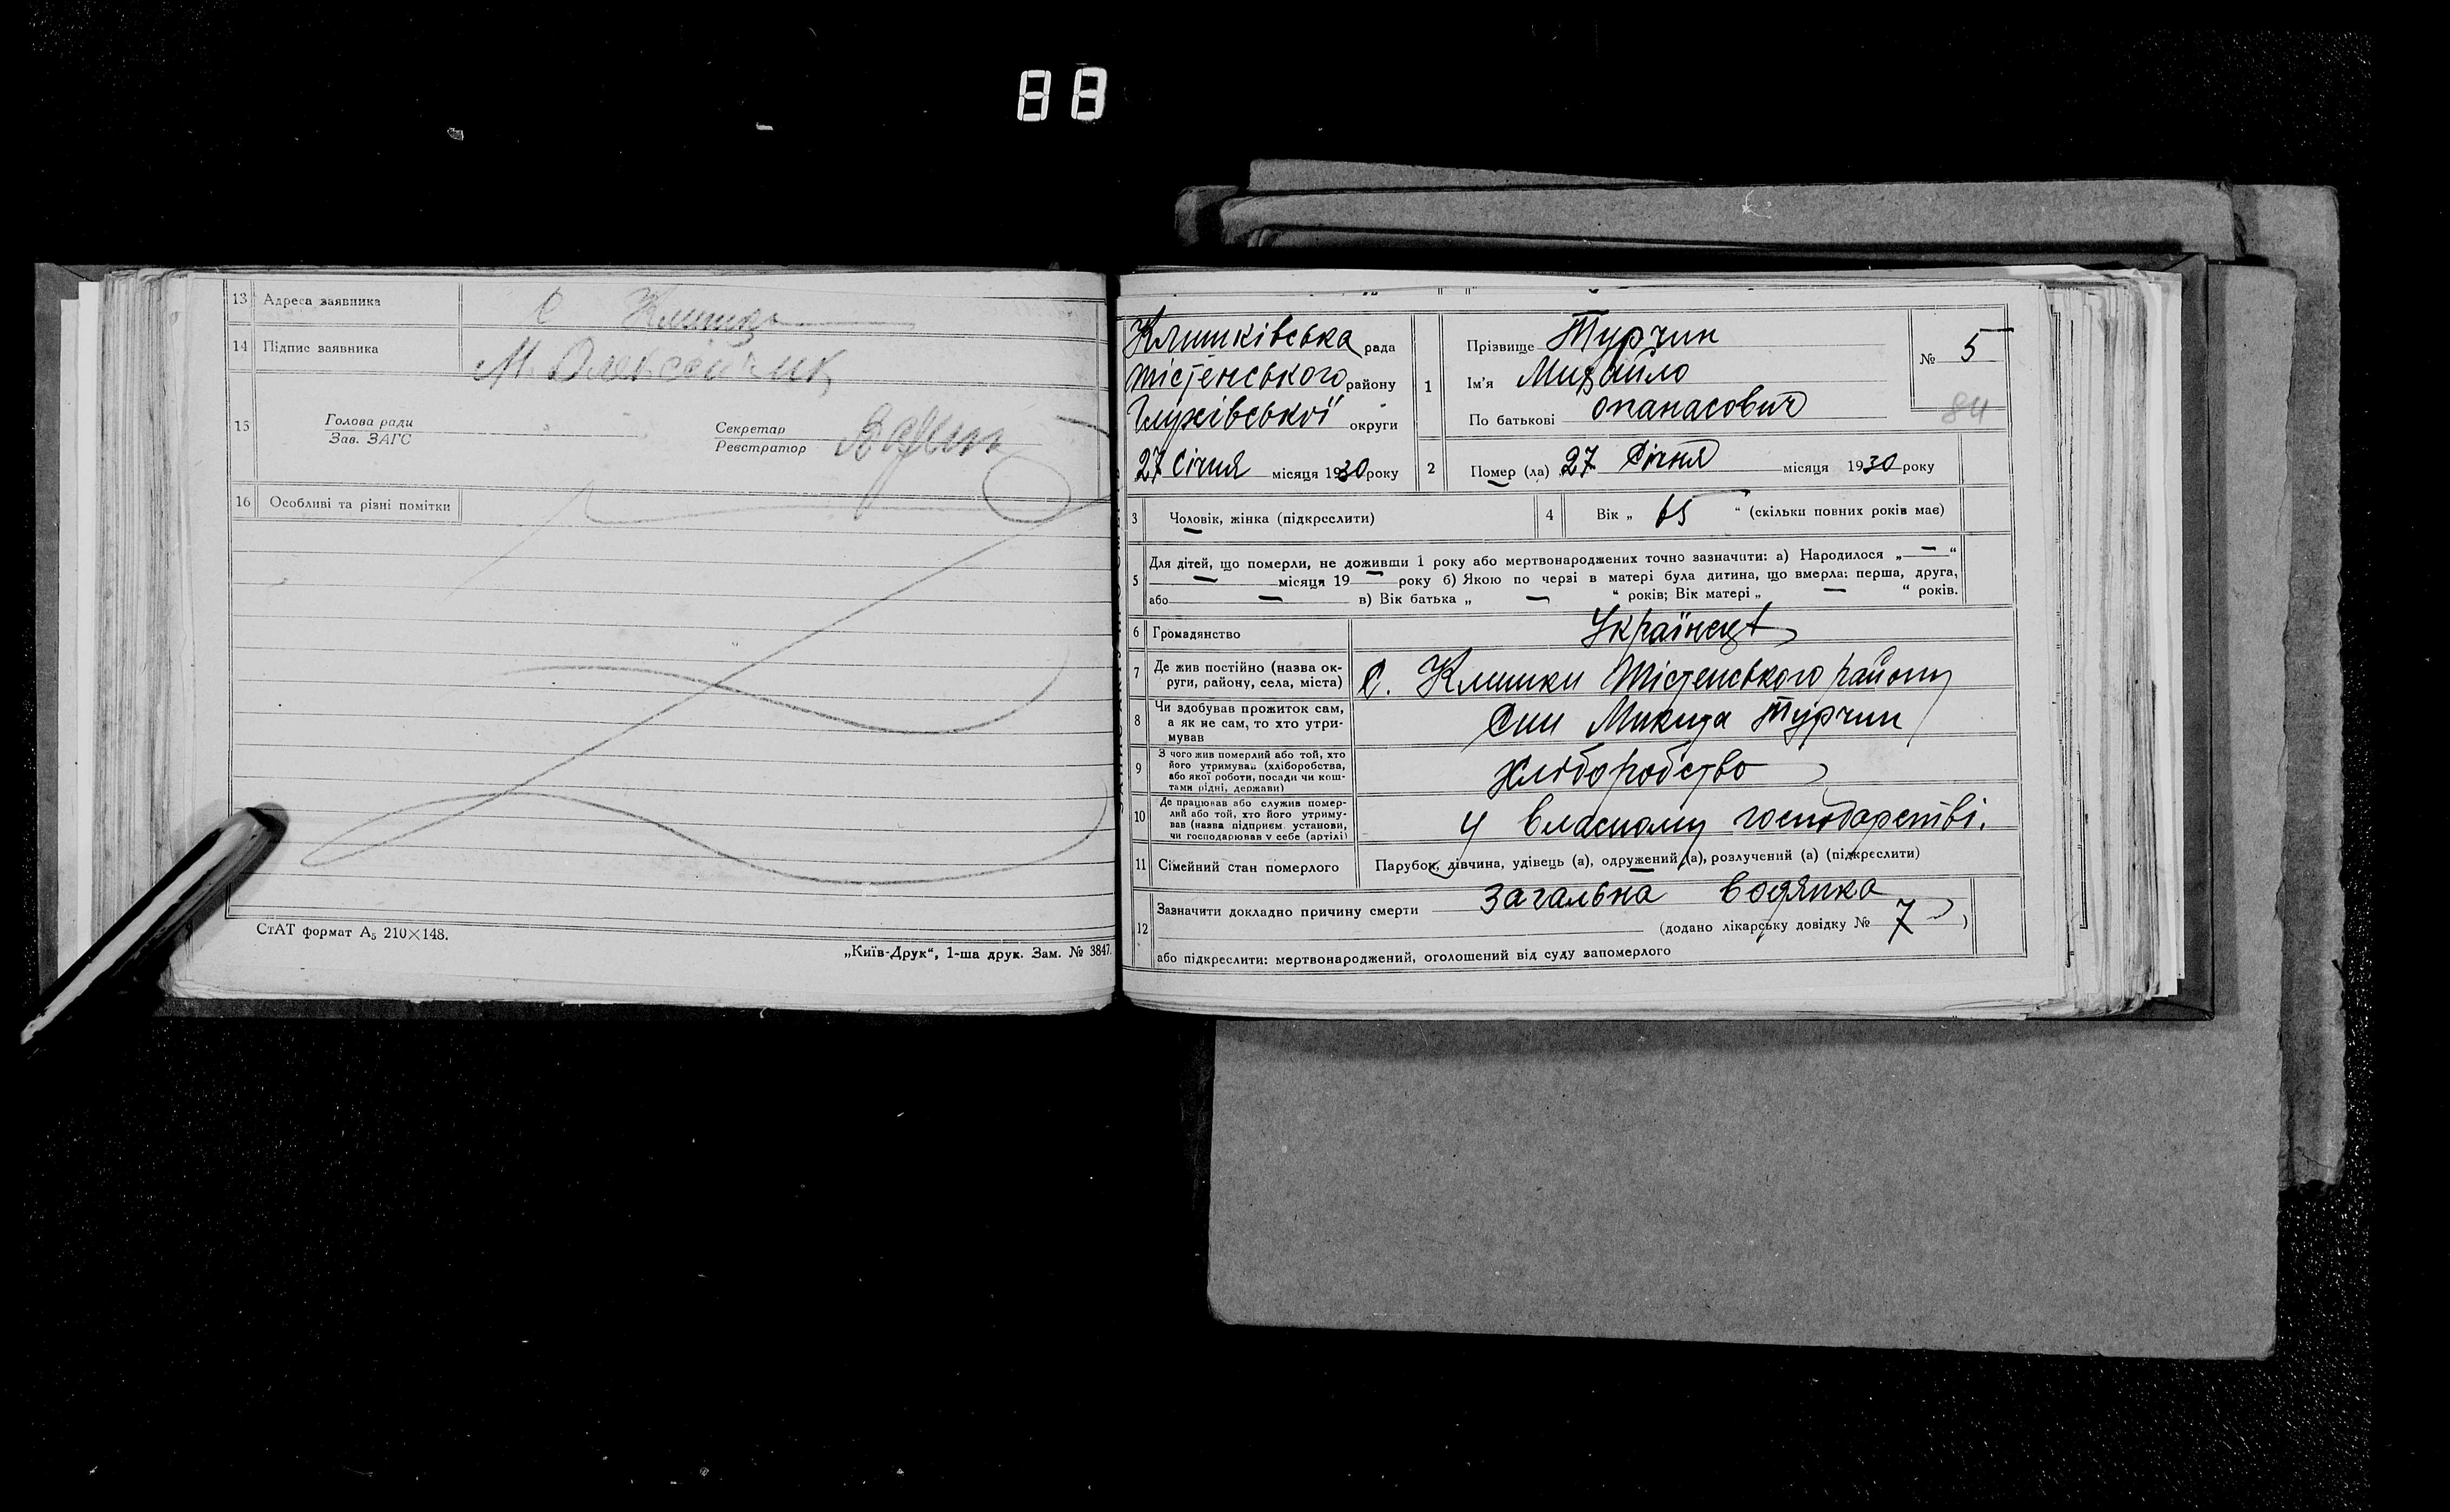 88
13 Адреса заявника С Клишки
14 Підпис заявника М. Олексейчик
15 Голова ради
Зав. ЗАГС
Секретар
Реєстратор
16 Особливі та різні помітки
СтАТ формат А5 210×148.
„Київ-Друк“, 1-ша друк. Зам. № 3847.
Клишківська рада
округи
27 Січня місяця 1930 року
1 Прізвище Турчин
Ім'я Михайло
По батькові Опанасович
№ 5
84
2 Помер (ла) 27 Січня місяця 1930 року
3 Чоловік, жінка (підкреслити)
4 Вік „ 65 “ (скільки повних років має)
5 Для дітей, що померли, не доживши 1 року або мертвонароджених точно зазначити: а) Народилося „ — “
— місяця 19 — року б) Якою по черзі в матері була дитина, що вмерла: перша, друга,
або — в) Вік батька „ — “ років; Вік матері „ — “ років.
6 Громадянство Українець
7 Де жив постійно (назва ок-
руги, району, села, міста) С. Клишки району
8 Чи здобував прожиток сам,
а як не сам, то хто утри-
мував Син Микита Турчин
9 З чого жив померлий або той, хто
його утримував (хліборобства,
або якої роботи, посади чи кош-
тами рідні, держави) Хліборобство
10 Де працював або служив помер-
лий або той, хто його утриму-
вав (назва підприєм. установи,
чи господарював у себе (артілі) У власному господарстві.
11 Сімейний стан померлого Парубок, дівчина, удівець (а), одружений (а), розлучений (а) (підкреслити)
12 Зазначити докладно причину смерти Загальна водянка
(додано лікарську довідку № 7 )
або підкреслити: мертвонароджений, оголошений від суду запомерлого